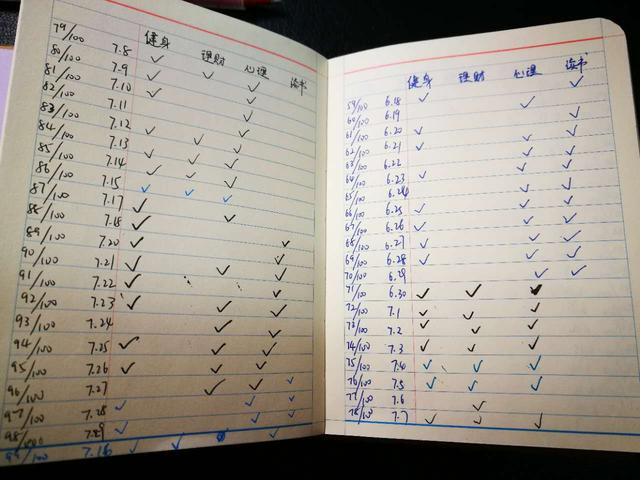 健身 理财 心理 读书
79/100 7.8 ✓
80/100 7.9 ✓ ✓ ✓
81/100 7.10 ✓ ✓
82/100 7.11 ✓
83/100 7.12 ✓
84/100 7.13 ✓ ✓ ✓
85/100 7.14 ✓ ✓ ✓
86/100 7.15 ✓ ✓ ✓
87/100 7.17 ✓ ✓ ✓
88/100 7.18 ✓ ✓
89/100 7.20 ✓ ✓
90/100 7.21 ✓ ✓
91/100 7.22 ✓ ✓ ✓
92/100 7.23 ✓ ✓
93/100 7.24 ✓ ✓
94/100 7.25 ✓ ✓ ✓
95/100 7.26 ✓ ✓ ✓
96/100 7.27 ✓ ✓ ✓
97/100 7.28 ✓ ✓ ✓
98/100 7.29 ✓ ✓
99/100 7.16 ✓ ✓ ✓
健身 理财 心理 读书
59/100 6.18 ✓ ✓ ✓
60/100 6.19 ✓
61/100 6.20 ✓ ✓
62/100 6.21 ✓ ✓ ✓
63/100 6.22 ✓ ✓
64/100 6.23 ✓ ✓ ✓
65/100 6.24 ✓ ✓
66/100 6.25 ✓ ✓ ✓
67/100 6.26 ✓ ✓ ✓
68/100 6.27 ✓ ✓ ✓
69/100 6.28 ✓ ✓ ✓
70/100 6.29 ✓ ✓
71/100 6.30 ✓ ✓ ✓
72/100 7.1 ✓ ✓ ✓
73/100 7.2 ✓ ✓ ✓
74/100 7.3 ✓ ✓ ✓
75/100 7.4 ✓ ✓ ✓
76/100 7.5 ✓ ✓ ✓
77/100 7.6 ✓
78/100 7.7 ✓ ✓ ✓